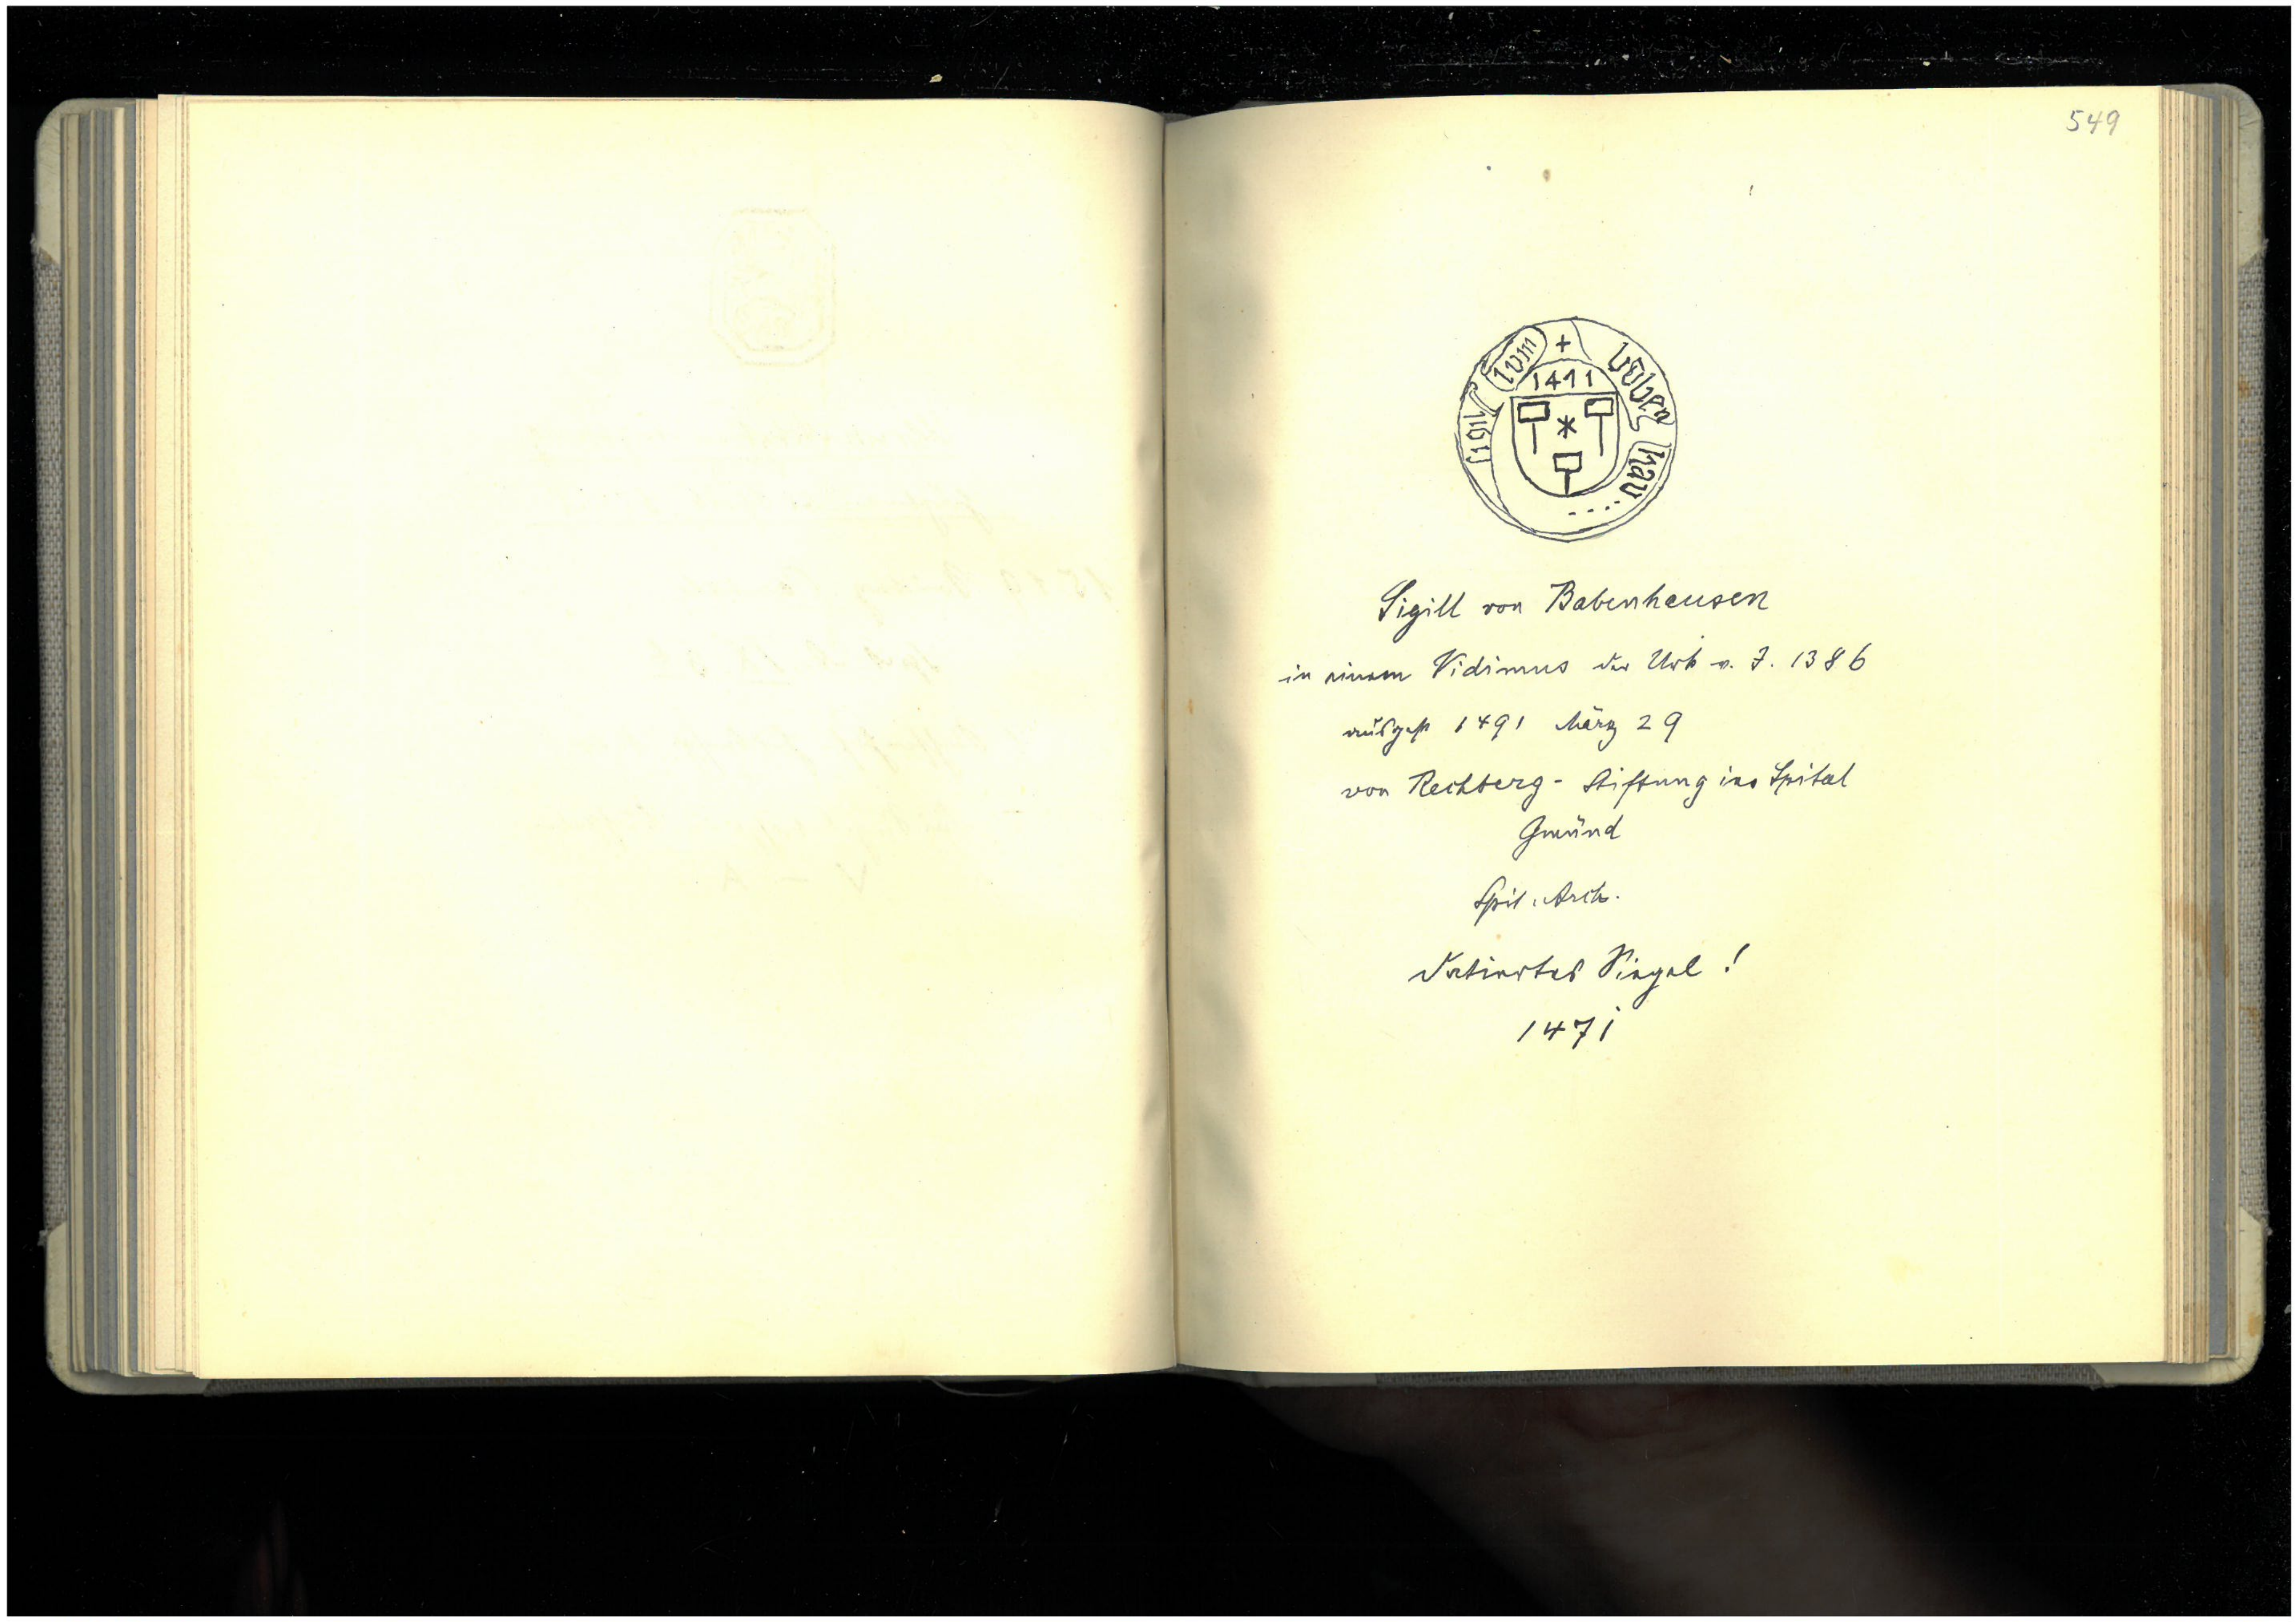 549
sigil lum + baben hau....
1471
Sigill von Babenhausen
in einem Vidimus der Urk v. J. 1386
ausgest 1491 März 29
von Rechberg - Stiftung ins Spital
Gmünd
Spit. Arch.
datiertes Siegel !
1471